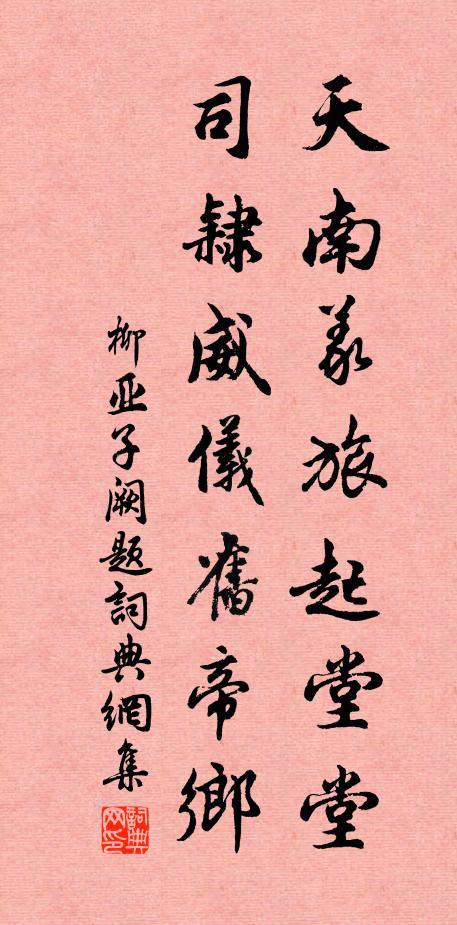 天南義旅起堂堂
司隸威儀舊帝鄉
柳亚子阙题詞典網集
詞典网印